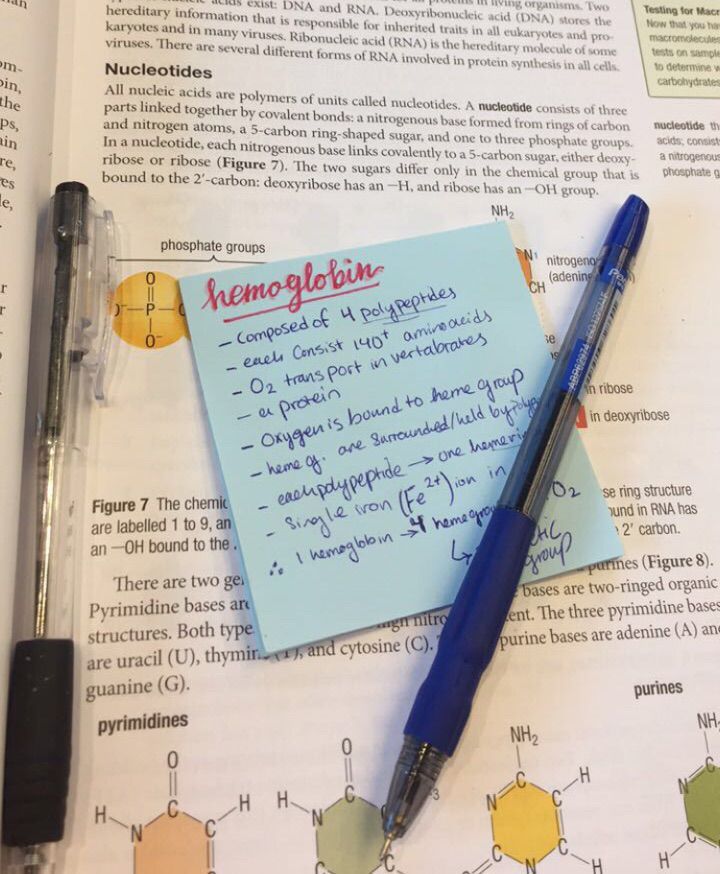 nucleic acids exist: DNA and RNA. Deoxyribonucleic acid (DNA) stores the
hereditary information that is responsible for inherited traits in all eukaryotes and pro-
karyotes and in many viruses. Ribonucleic acid (RNA) is the hereditary molecule of some
viruses. There are several different forms of RNA involved in protein synthesis in all cells.
Nucleotides
All nucleic acids are polymers of units called nucleotides. A nucleotide consists of three
parts linked together by covalent bonds: a nitrogenous base formed from rings of carbon
and nitrogen atoms, a 5-carbon ring-shaped sugar, and one to three phosphate groups.
In a nucleotide, each nitrogenous base links covalently to a 5-carbon sugar, either deoxy-
ribose or ribose (Figure 7). The two sugars differ only in the chemical group that is
bound to the 2′-carbon: deoxyribose has an —H, and ribose has an —OH group.
Testing for Macr
Now that you ha
macromolecules
tests on sampl
to determine w
carbohydrates
nucleotide th
acids; consist
a nitrogenous
phosphate g
NH₂
phosphate groups
O
O⁻ P
O⁻
N¹ nitrogeno
(adenin
CH
hemoglobin
- Composed of 4 polypeptides
- each consist 140⁺ amino acids
- O₂ transport in vertabrates
- a protein
- Oxygen is bound to heme group
- heme g. are surrounded/held by
- each polypeptide → one heme
- single iron (Fe²⁺) ion in O₂
∴ 1 hemoglobin → 4 heme
↳ group
in ribose
in deoxyribose
Figure 7 The chemic
are labelled 1 to 9, an
an —OH bound to the
se ring structure
ound in RNA has
2′ carbon.
There are two ge
Pyrimidine bases are
structures. Both type
are uracil (U), thymin and cytosine (C).
guanine (G).
purines (Figure 8).
bases are two-ringed organic
The three pyrimidine bases
purine bases are adenine (A) an
pyrimidines
purines
O
C
H N C H
O
H N C
NH₂
C
N C H
N C H
NH
C
N
C
H